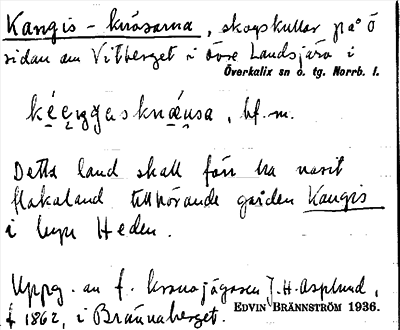 Kangis-knösarna, skogskullar på ö
sidan om Vitberget i övre Landsjärv i
Överkalix sn o. tg. Norrb. l.
bf. m.
Detta land skall förr ha varit
flakaland tillhörande gården Kangis
i byn Heden.
Uppg. av f. kronojägaren J. H. Asplund,
f. 1862, i Brännaberget.
EDVIN BRÄNNSTRÖM 1936.